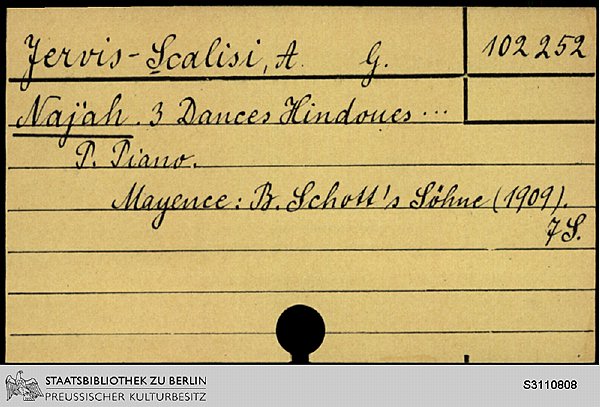 Jervis-Scalisi, A. G. 102252
Najàh. 3 Dances Hindoues ...
P. Piano.
Mayence: B. Schott's Söhne (1909).
7 S.
STAATSBIBLIOTHEK ZU BERLIN
PREUSSISCHER KULTURBESITZ
S3110808